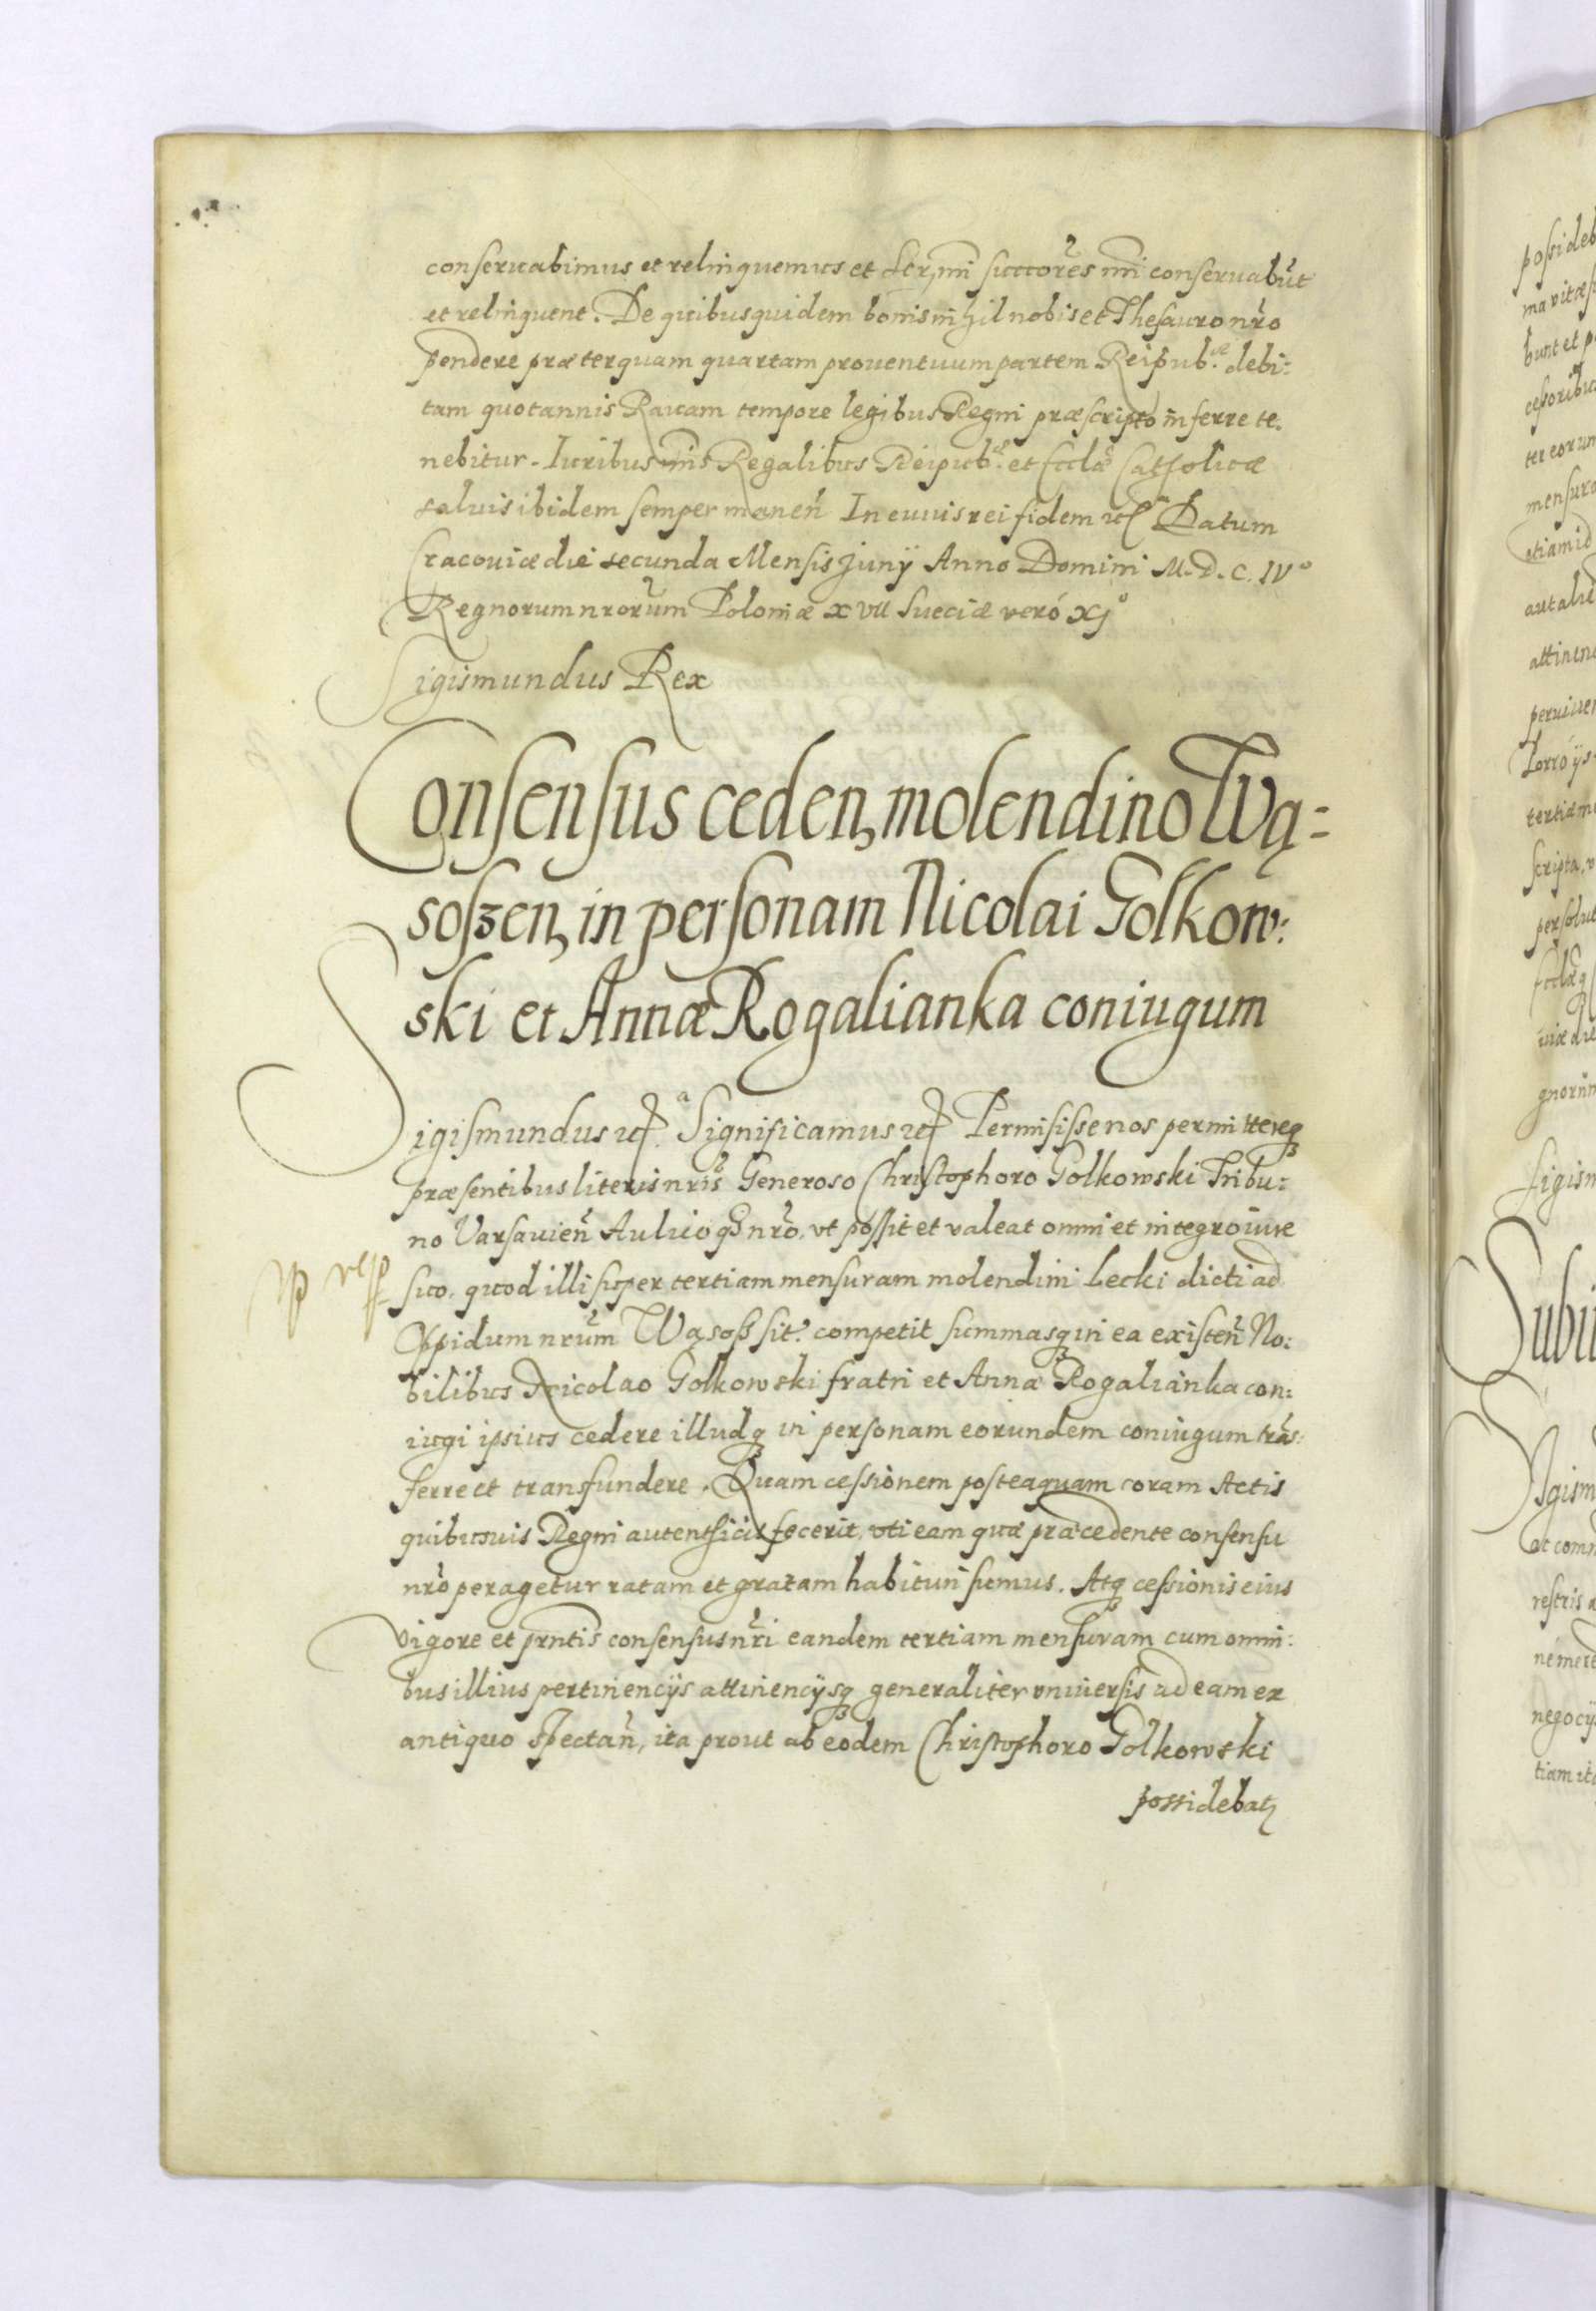 conseruabimus et relinquemus et Serm̃i succores̃ nr̃i conseruabũt
et relinquent. De quibus quidem bonis nihil nobis et Thesauro nr̃o
pendere præterquam quartam prouentuum partem Reipub.æ debi:
tam quotannis Rauam tempore legibus Regni præscripto inferre te:
nebitur. Iuribus nr̃is Regalibus Reipub.æ et Eccl̃æ Catholicæ
saluis ibidem semper maneñ In cuius rei fidem etc Datum
Cracouiæ die secunda Mensis Junÿ Anno Domini M.D.C.IVº
Regnorum nrorũm Poloniæ XVII Sueciæ veró XJº
Sigismundus Rex
Consensus ceden, molendino Wą=
soszen, in personam Nicolai Golkow:
ski et Annæ Rogalianka coniugum
Sigismundus etc. Significamus etc Permisisse nos permittereq3
præsentibus literis nr̃is Generoso Christophoro Golkowski Tribu:
no Varsauieñ Aulicoq3 nr̃o. vt possit et valeat omni et integro iure
suo. quod illi super tertiam mensuram molendini Lecki dicti ad
Oppidum nrũm Wąsosz sit. competit summasq3 in ea existeñ No:
bilibus Nicolao Golkowski fratri et Annæ Rogalianka con:
iugi ipsius cedere illudq3 in personam eorundem coniugum trãs:
ferre et transfundere. Quam cessionem posteaquam coram Actis
quibusuis Regni autenthicis fecerit, vti eam quæ præcedente consensu
nr̃o peragetur ratam et gratam habituri sumus. Atq3 cessionis eius
vigore et pr̃ntis consensus nr̃i eandem tertiam mensuram cum omni:
bus illius pertinencÿs attinencÿsq3 generaliter vniuersis ad eam ex
antiquo spectañ, ita prout ab eodem Christophoro Golkowski
possidebatz